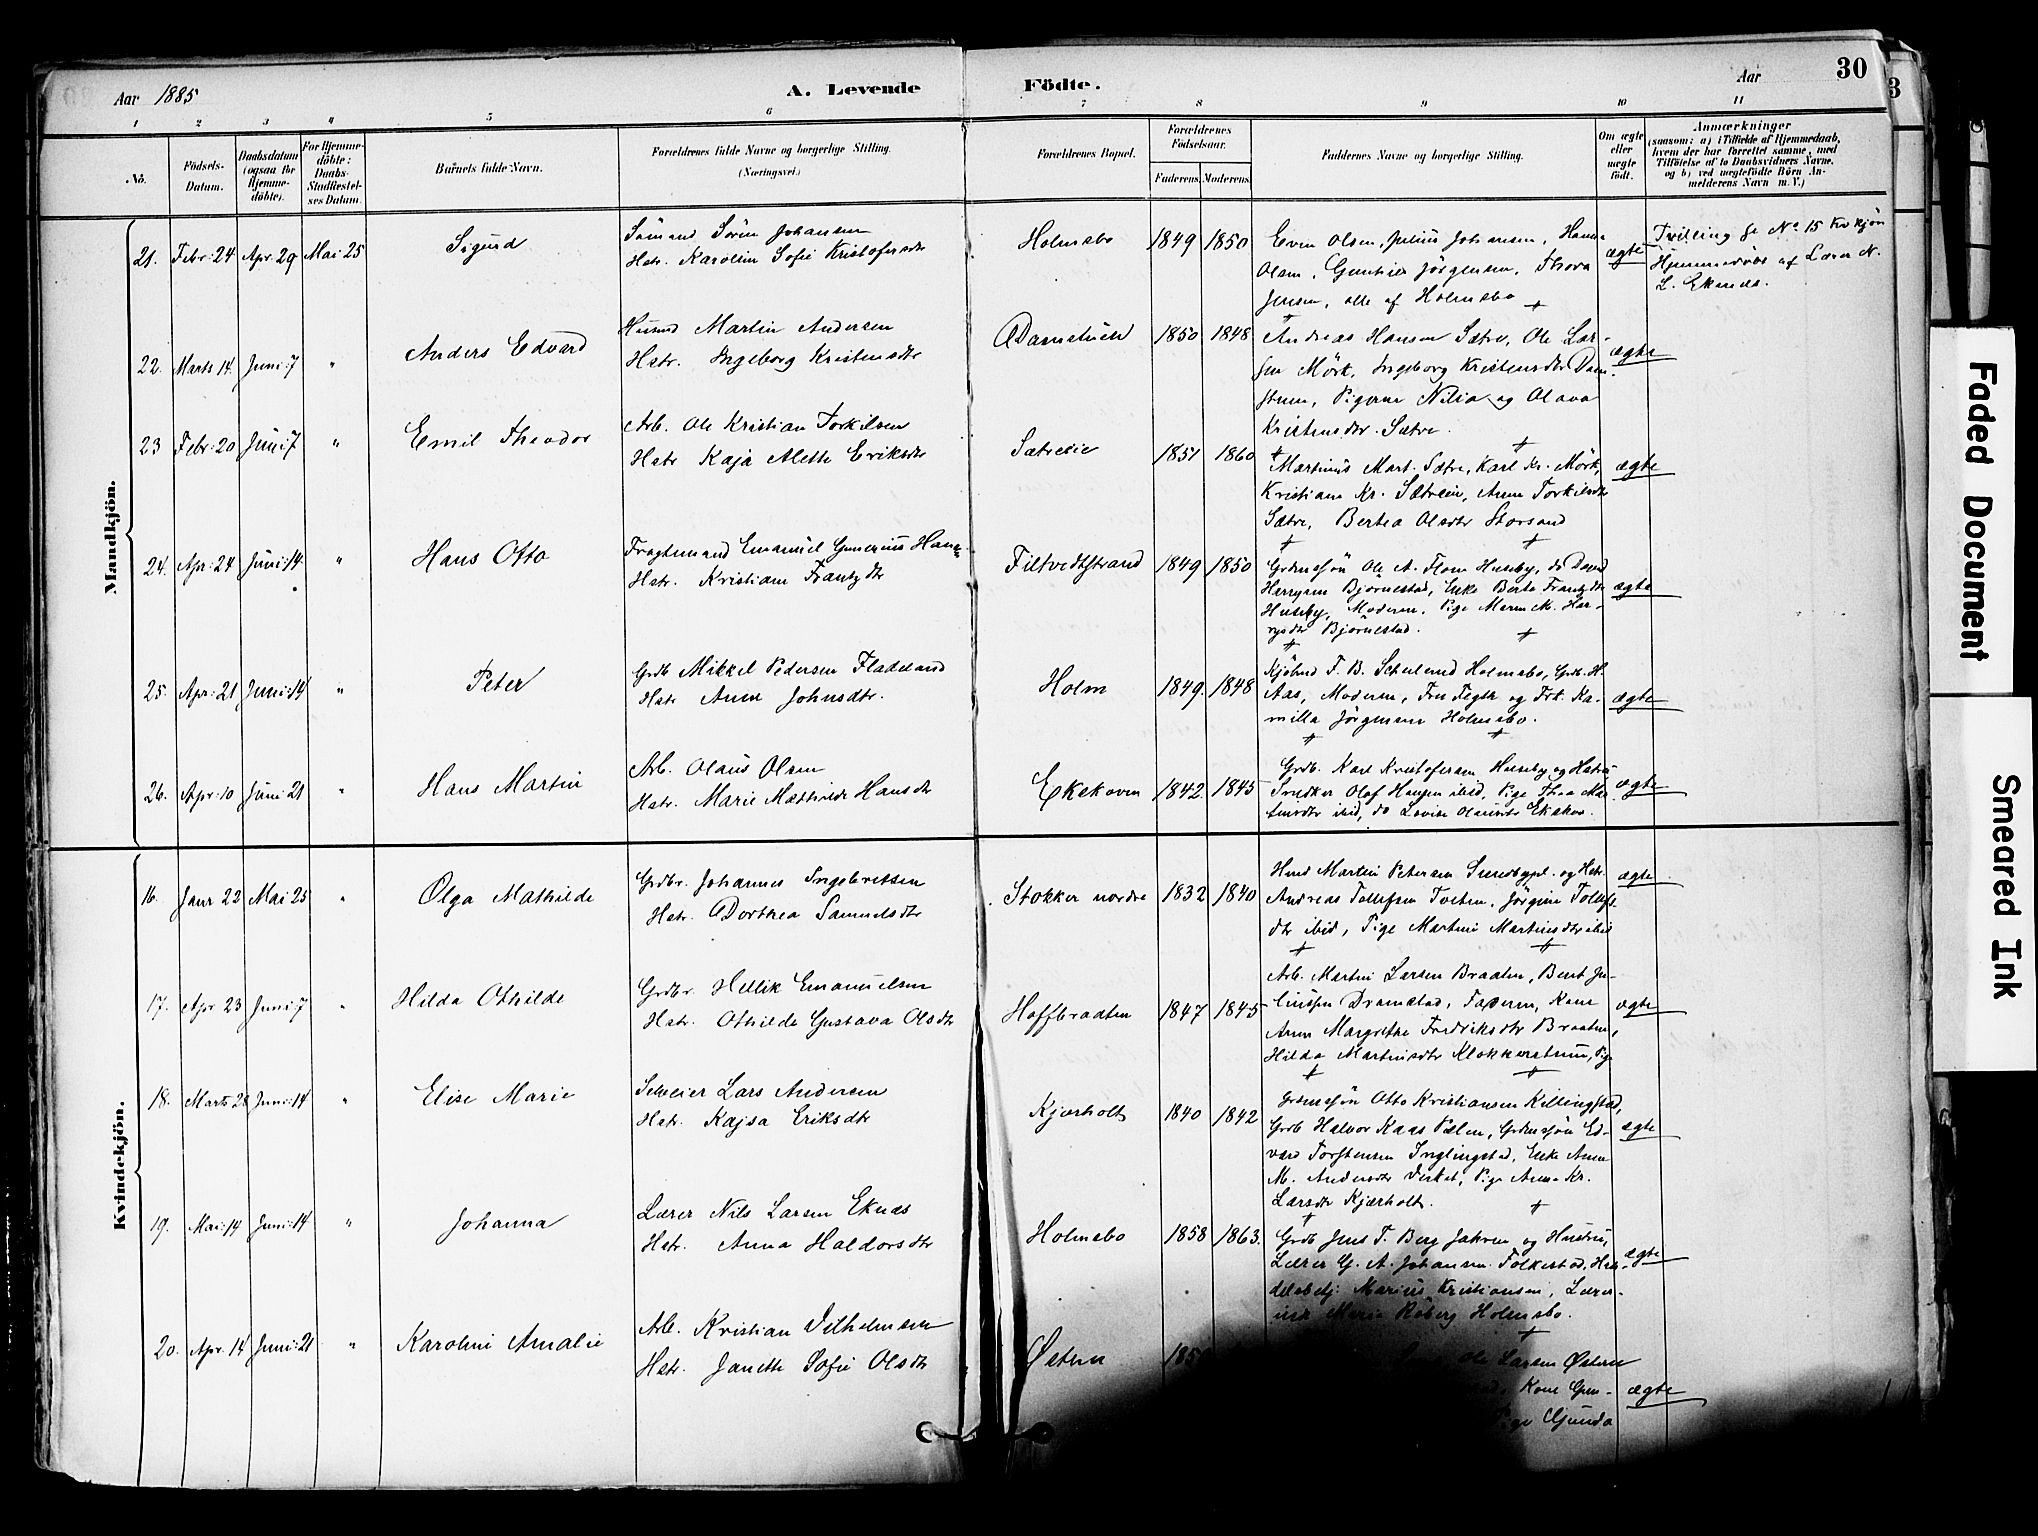 30
Aar 1885
A. Levende
Födte.
Aar
3
1 2 3 4 5 6 7 8 9 10 11
No.
Födsels-Datum.
Daabsdatum (ogsaa for Hjemme-döbte).
For Hjemme-döbte: Daabs-Stadfæstel-ses Datum.
Barnets fulde Navn.
Forældrenes fulde Navne og borgerlige Stilling.
(Næringsvei.)
Forældrenes Bopæl.
Forældrenes Födselsaar.
Faderens. Moderens.
Faddernes Navne og borgerlige Stilling.
Om ægte eller uægte födt.
Anmærkninger
(saasom: a) i Tilfælde af Hjemmedaab, hvem der har forrettet samme, med Tilföielse af to Daabsvidners Navne. og b) ved uegtefödte Börn An-melderens Navn m. V.)
Mandkjön.
21. Febr: 24 Apr. 29 Mai 25 Sigurd
Sömand Sören Johansen
Hstr. Karoline Sofie Kristofersdtr
Holmsbo 1849 1850
Even Olsen, Julius Johansen, Hans
Olsen, Jörgensen, Thora
Jensen, alle af Holmsbo
ægte
Tvilling se No 15 Kvkjön
Hjemmedöbt af Lærer N.
L. Eknes.
22. Marts 14. Juni 7 " Anders Edvard
Husmd Martin Andersen
Hstr. Ingeborg Kristensdtr
1850 1848
Andreas Hansen Sætre, Ole Lar-
sen Mörk, Ingeborg Kristensdtr Dam-
Pigerne Nilia og Olava
Kristensdtr. Sætre.
ægte
23 Febr: 20 Juni 7 " Emil Theodor
Arb. Ole Kristian Torkilsen
Hstr Kaja Alette Eriksdtr
Sætreeie 1851 1860
Martinus Mart. Sætre, Karl Kr. Mörk,
Kristiane Kr. Sætreeie, Anne Torkilsdtr
Sætre, Bertea Olsdtr Storsand
ægte
24. Apr: 24 Juni 14. " Hans Otto
Fragtemand Emanuel Gunerius Hans
Hstr. Kristiane Frantzdtr
Filtvedtstrand 1849 1850
Grdmssön Ole A. Huseby, do David
Björnestad, Enke Berte Frantzdtr
Huseby, Moderen, Pige Maren M. Har-
rysdtr Björnestad.
ægte
25. Apr: 21 Juni 14 " Peter
Grdb Mikkel Pedersen Fladeland
Hstr Anne Johnsdtr.
Holm 1849. 1848
Kjöbmd F. B. Holmsbo, Grdb. H.
Aas, Moderen, Fru og Frk. Ka-
milla Jörgensen Holmsbo.
ægte
26. Apr: 10 Juni 21 " Hans Martin
Arb. Olaus Olsen
Hstr. Marie Mathilde Hansdtr
Ekekoven 1842. 1845
Grdb. Karl Kristofersen Huseby og Hstru
Snedker Olof Hansen ibid, Pige Thea Mar-
tinsdtr ibid, do Lovise Olausdtr Ekekov.
ægte
Kvindekjön.
16. Janr 22 Mai 25 " Olga Mathilde
Grdbr. Johannes Ingebretsen
Hstr. Dorthea Samuelsdtr
Stokker nordre 1832 1840
Hmd Martin Petersen Sundbypl. og Hstr.
Andreas Tollefsen Tveten, Jörgine Tollefs-
dtr ibid, Pige Martine Martinsdtr ibid
ægte
17. Apr 23 Juni 7 " Hilda Othilde
Grdbr. Hellik Emanuelsen
Hstr. Othilde Gustava Olsdtr
Hoffbraaten 1847 1845
Arb. Martin Larsen Braaten, Bent Ju-
liussen Dramstad, Faderen, Kone
Anne Margrethe Fredriksdtr Braaten,
Hilda Martinsdtr Klokkerstuen, Pige
ægte
18. Marts 28 Juni 14 " Elise Marie
Sveier Lars Andersen
Hstr. Kajsa Eriksdtr
Kjærholt 1840 1842
Grdmssön Otto Kristiansen Killingstad,
Grdb Halvor Kaas Pælen, Grdmssön Ed-
vard Torstensen Inglingstad, Enke Anne
M. Andersdtr Virket, Pige Anne Kr.
Larsdtr Kjærholt.
ægte
19. Mai 14 Juni 14 " Johanna
Lærer Nils Larsen Eknæs
Hstr. Anna Haldorsdtr
Holmsbo 1858 1863.
Grdb Jens T. Berg Jahren og Hustru,
Lærer G. A. Johansen Folkestad, Han-
delsbetj. Marius Kristiansen, Lærer-
inde Marie Röberg Holmsbo.
ægte
20. Apr. 14 Juni 21 " Karoline Amalie
Arb. Kristian Vilhelmsen
Hstr. Janette Sofie Olsdtr
Östern
Ole Larsen Östern
Kone Gun-
Pige Gunda
ægte
Faded Document
Smeared Ink